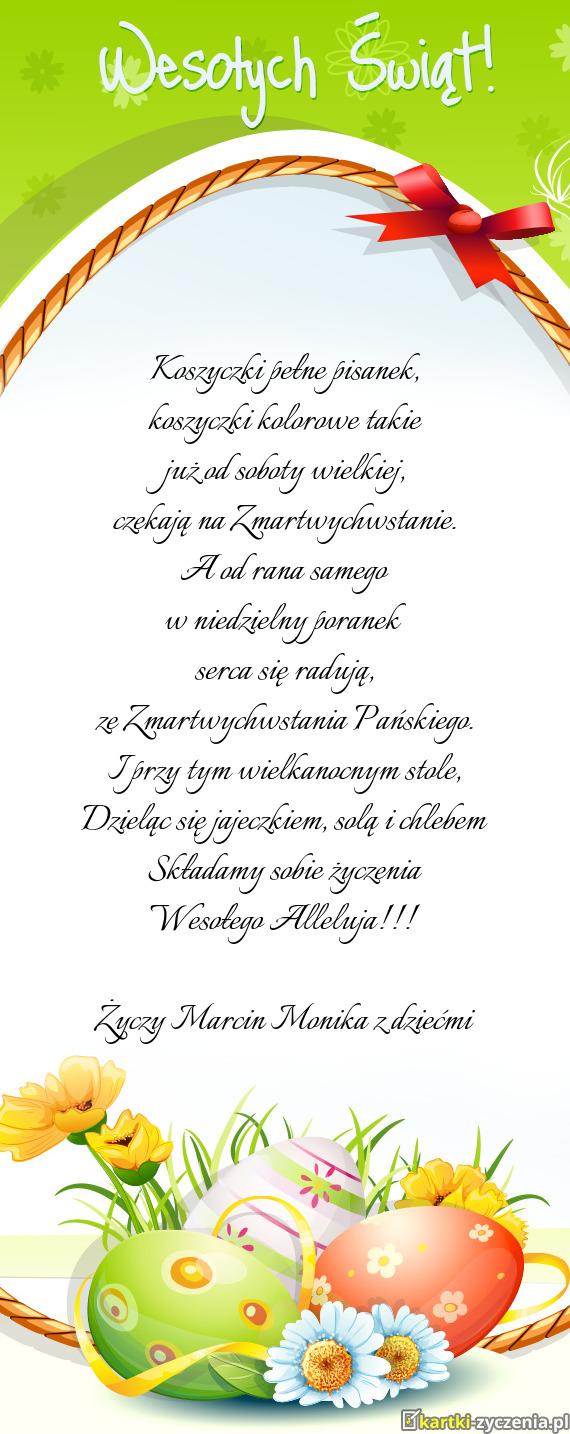 Wesołych Świąt!
Koszyczki pełne pisanek,
koszyczki kolorowe takie
już od soboty wielkiej,
czekają na Zmartwychwstanie.
A od rana samego
w niedzielny poranek
serca się radują,
ze Zmartwychwstania Pańskiego.
I przy tym wielkanocnym stole,
Dzieląc się jajeczkiem, solą i chlebem
Składamy sobie życzenia
Wesołego Alleluja!!!
Życzy Marcin Monika z dziećmi
kartki-zyczenia.pl